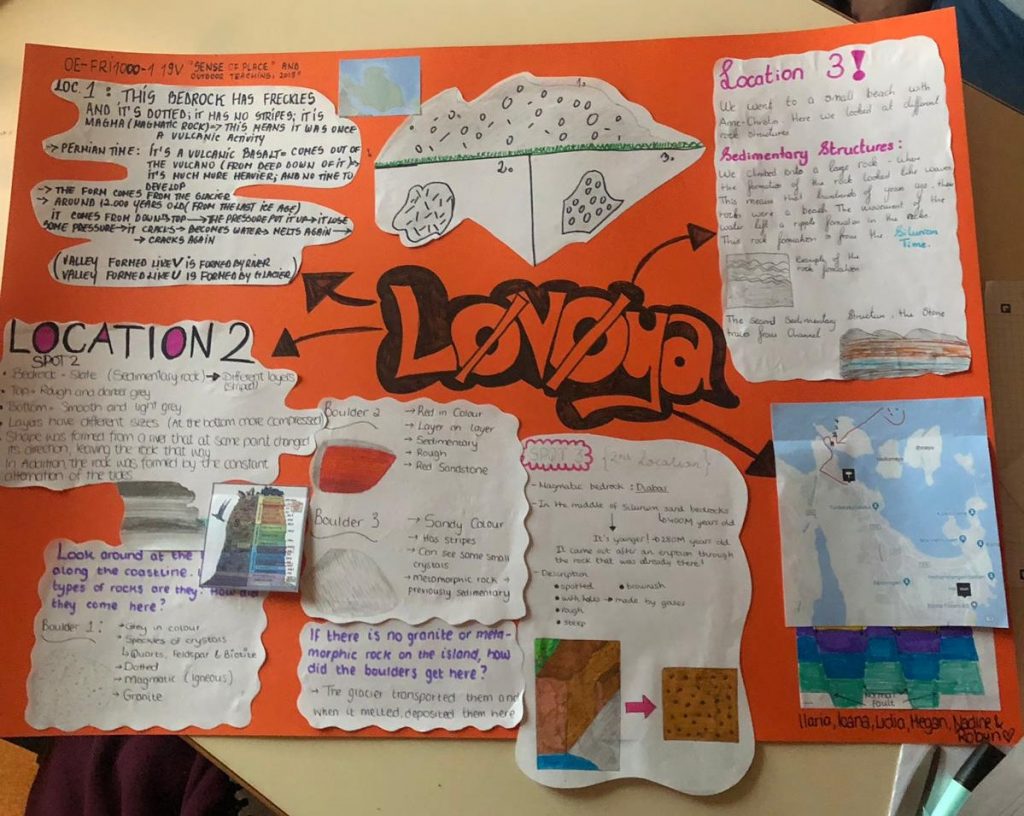 OE-FRI1000-1 19V "SENSE OF PLACE" AND
OUTDOOR TEACHING, 2019"
LOC. 1: THIS BEDROCK HAS FRECKLES
AND IT'S DOTTED; IT HAS NO STRIPES; IT IS
MAGMA (MAGMATIC ROCK)=> THIS MEANS IT WAS ONCE
A VULCANIC ACTIVITY
=> PERMIAN TIME: IT'S A VULCANIC BASALT= COMES OUT OF
THE VULCANO (FROM DEEP DOWN OF IT)
IT'S MUCH MORE HEAVIER; AND NO TIME TO
DEVELOP
-> THE FORM COMES FROM THE GLACIER
-> AROUND 12.000 YEARS OLD (FROM THE LAST ICE AGE)
IT COMES FROM DOWN TO TOP -> THE PRESSURE PUT IT UP -> IT LOSE
SOME PRESSURE -> IT CRACKS -> BECOMES WATER -> MELTS AGAIN ->
-> CRACKS AGAIN
(VALLEY FORMED LIKE V IS FORMED BY RIVER
VALLEY FORMED LIKE U IS FORMED BY GLACIER)
1.
2.
3.
Location 3!
We went to a small beach with
Anne-Christin. Here we looked at different
rock structures
Sedimentary Structures:
We climbed onto a large rock - where
the formation of the rock looked like waves.
This means that hundreds of years ago, these
rocks were a beach. The movement of the
water left a ripple formation in the rocks.
This rock formation is from the Silurian
Time.
Example of the
rock formation
The second Sedimentary Structure, the Stone
from Channel
LØVØya
LOCATION 2
SPOT 2
• Bedrock - Slate (Sedimentary rock) -> Different layers
(striped)
• Top= Rough and darker grey
• Bottom= Smooth and light grey
• Layers have different sizes (At the bottom more compressed)
• Shape was formed from a river that at some point changed
its direction, leaving the rock that way
In Addition, the rock was formed by the constant
alternation of the tides
Boulder 2
-> Red in Colour
-> Layer on layer
-> Sedimentary
-> Rough
-> Red Sandstone
Boulder 3
-> Sandy Colour
-> Has stripes
-> Can see some small
crystals
-> metamorphic rock ->
previously sedimentary
Look around at the
along the coastline.
types of rocks are they? How did
they come here?
Boulder 1:
-> Grey in colour
-> Speckles of crystals
↳ Quarts, Feldspar & Biotite
-> Dotted
-> Magmatic (Igneous)
-> Granite
If there is no granite or meta-
morphic rock on the island, how
did the boulders get here?
-> The glacier transported them and
when it melted, deposited them here
SPOT 3 {2nd Location}
- Magmatic bedrock: Diabas
- In the middle of Silurium sand bedrocks
↳ 400M years old
It's younger! -> 280M years old
It came out after an eruption through
the rock that was already there!
- Description
• spotted • brownish
• with holes -> made by gases
• rough
• steep
Normal
Fault
Ilaria, Ioana, Lidia, Megan, Nadine &
Robyn ♡